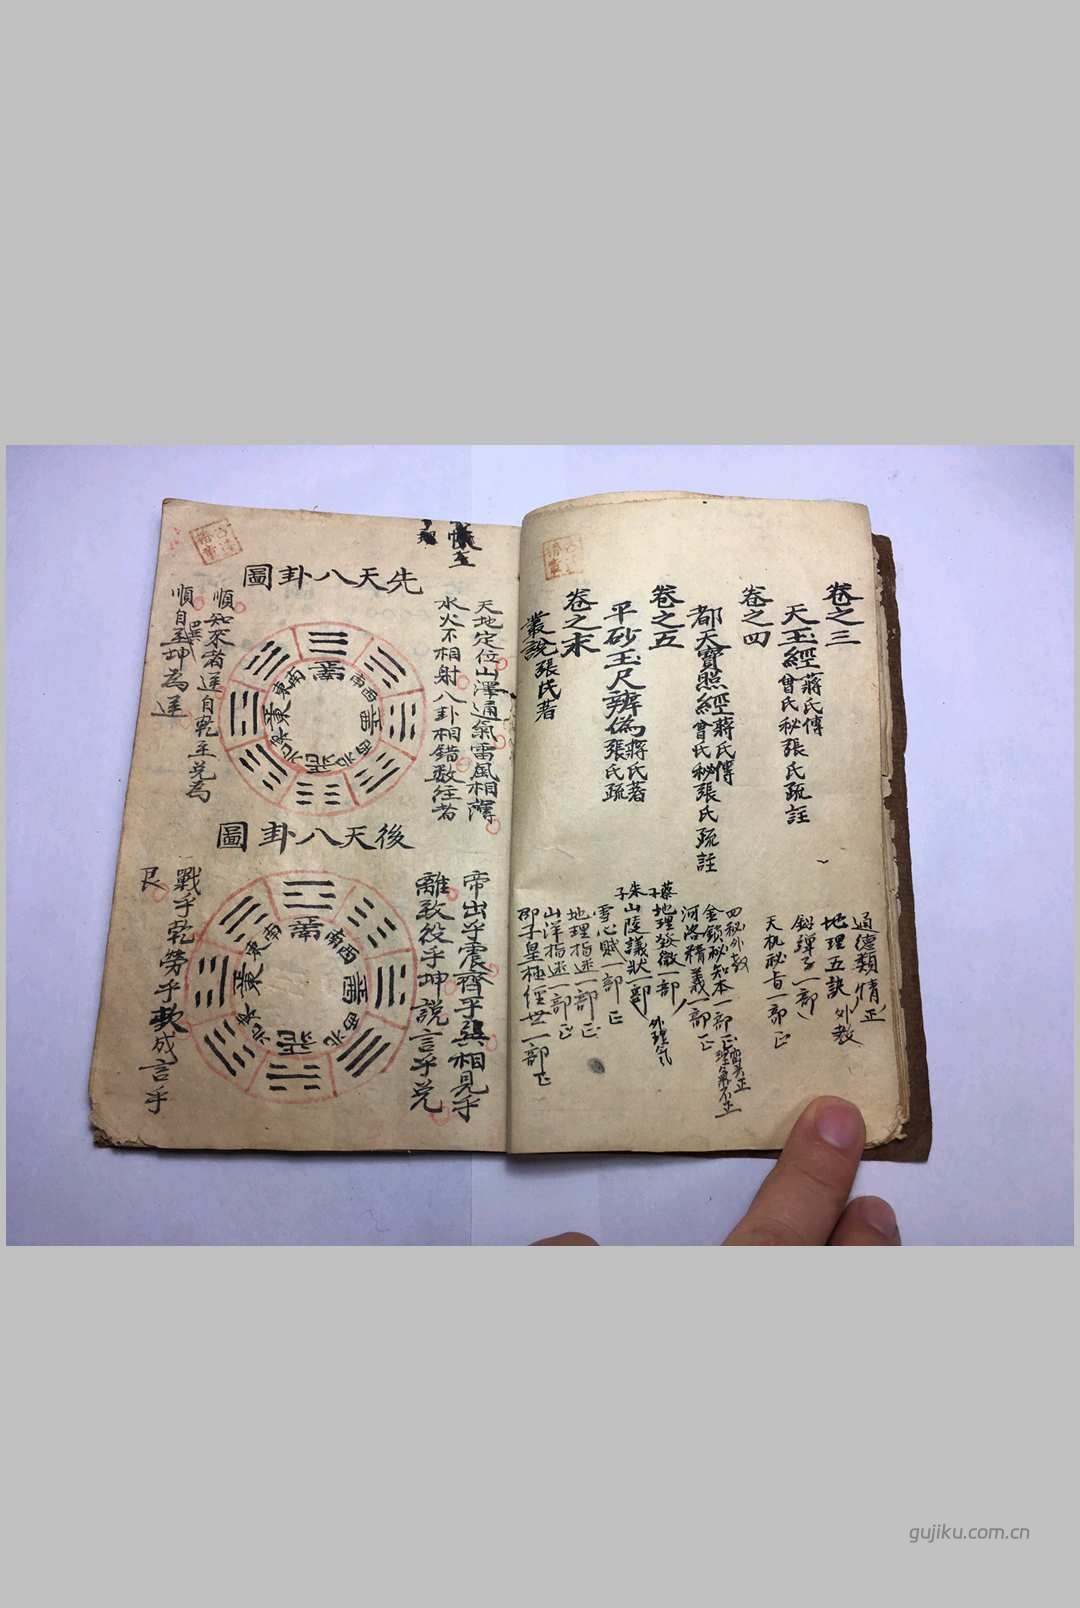 卷之三
天玉經 蔣氏傳
曾氏秘張氏疏註
卷之四
都天寶照經 蔣氏傳
曾氏秘張氏疏註
卷之五
平砂玉尺辨偽 蔣氏著
張氏疏
卷之末
叢說 張氏著
通德類情正
地理五訣外教
鉛彈子一部
天机秘旨一部正
四秘外教
金鎖秘知本一部正
巒头正
理氣不正
河洛精義一部正
蔡子
地理發微一部
外理氣
朱子
山陵議狀一部
雪心賦一部正
地理指迷一部正
山洋指迷一部正
邵子皇極經世一部正
先天八卦圖
天地定位山澤通氣雷風相薄
水火不相射八卦相錯数往者
順知來者逆自乾至兌為
順自巽坤為逆
南
西南
西
西北
北
東北
東
東南
後天八卦圖
帝出乎震齊乎巽相見乎
離致役乎坤說言乎兌
戰乎乾勞乎坎成言乎
艮
南
西南
西
西北
北
東北
東
東南
gujiku.com.cn